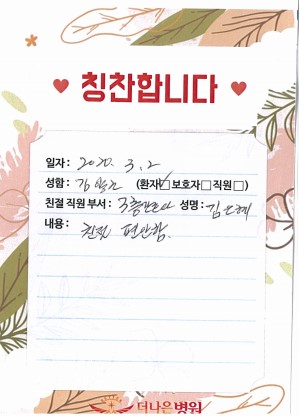 칭찬합니다
일자: 2020. 3. 2
성함: 김 (환자☑보호자□직원□)
친절 직원 부서: 3층간호사 성명: 김은혜
내용: 친절 편안함.
더나은병원